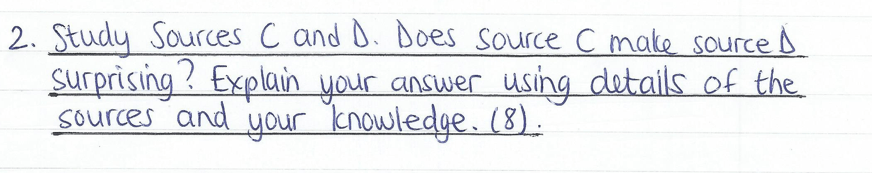 2. Study Sources C and D. Does source C make source D
surprising? Explain your answer using details of the
sources and your knowledge. (8).